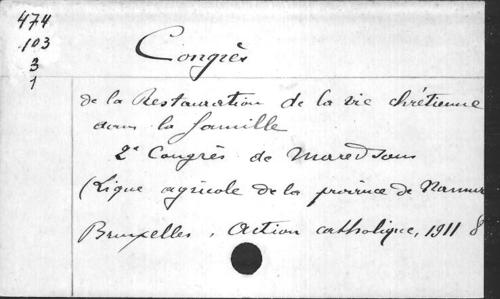 474
103
3
1
Congrès
de la Restauration de la vie chrétienne
dans la famille
2e Congrès de Maredsous
(Ligue agricole de la province de Namur
Bruxelles, Action catholique, 1911 8